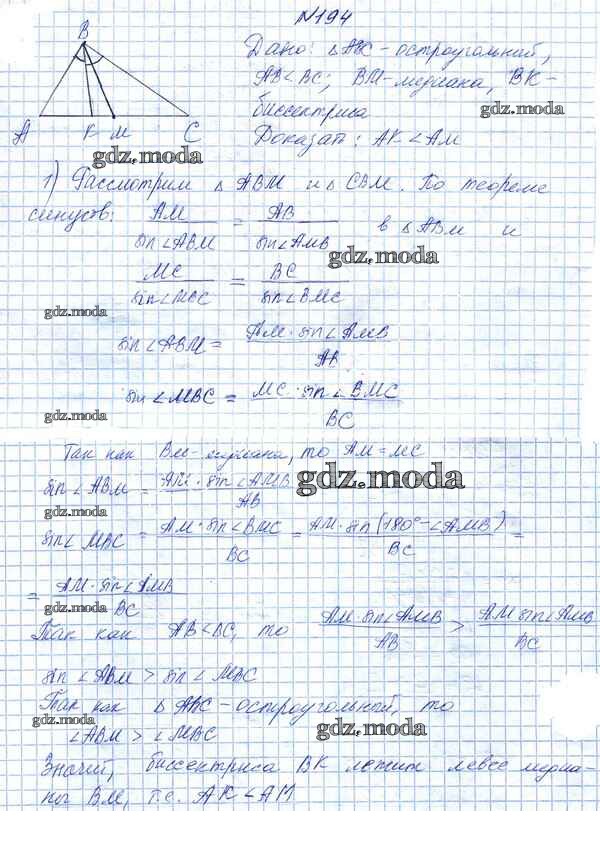 №194
B
A K M C
Дано: △ABC - остроугольный,
AB<BC; BM-медиана, BK-
биссектриса
Доказат: AK<AM
gdz.moda
gdz.moda
1) Рассмотрим △ABM и △CBM. По теореме
синусов: AM / sin∠ABM = AB / sin∠AMB в △ABM и
gdz.moda
MC / sin∠MBC = BC / sin∠BMC
gdz.moda
sin∠ABM = AM·sin∠AMB / AB
sin∠MBC = MC·sin∠BMC / BC
gdz.moda
Так как BM-медиана, то AM=MC
gdz.moda
sin∠ABM = AM·sin∠AMB / AB
gdz.moda
sin∠MBC = AM·sin∠BMC / BC = AM·sin(180°-∠AMB) / BC =
= AM·sin∠AMB / BC
gdz.moda
Так как AB<BC, то AM sin∠AMB / AB > AM sin∠AMB / BC
sin∠ABM > sin∠MBC
Так как △ABC - остроугольный, то
gdz.moda
gdz.moda
∠ABM > ∠MBC
Значит, биссектриса BK лежит левее медиа-
ны BM, т.е. AK<AM
gdz.moda